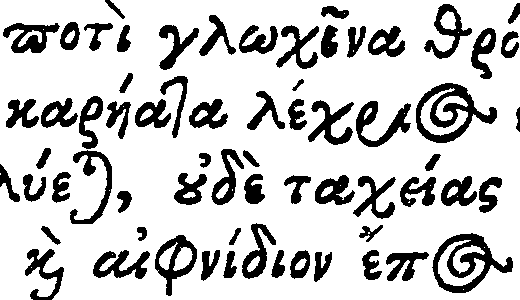 ϖοτὶ γλωχῖνα θρό
καρήατα λέχριος
λύεται, οὐδὲ ταχείας
καὶ αἰφνίδιον ἔπος